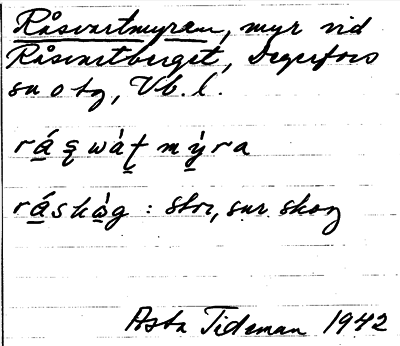 Råsvartmyran, myr vid
Råsvartberget, Degerfors
sn o tg, Vb. l.
rá̱s̨wàt̯ mỳ̱ra
rá̱skò̱g : stor, sur skog
Asta Tideman 1942